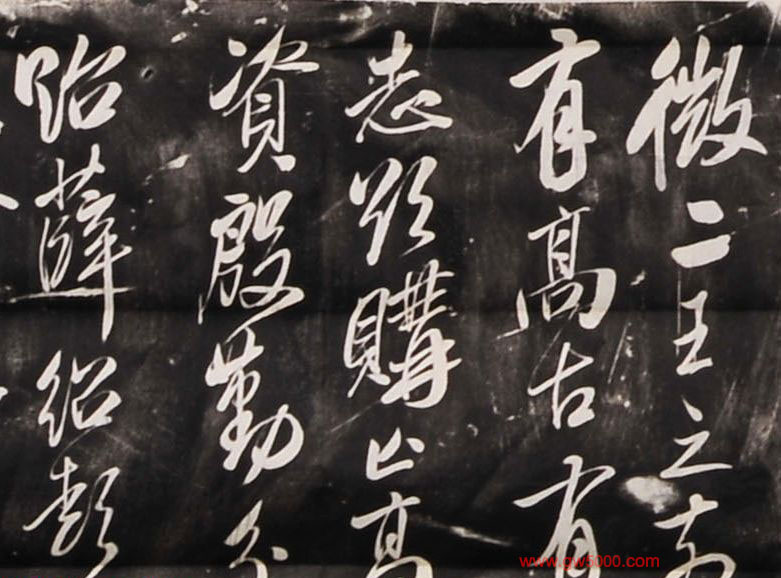 微二王之前
有高古有
志欲購高
資殷勤分
貽薛紹彭
www.gw5000.com